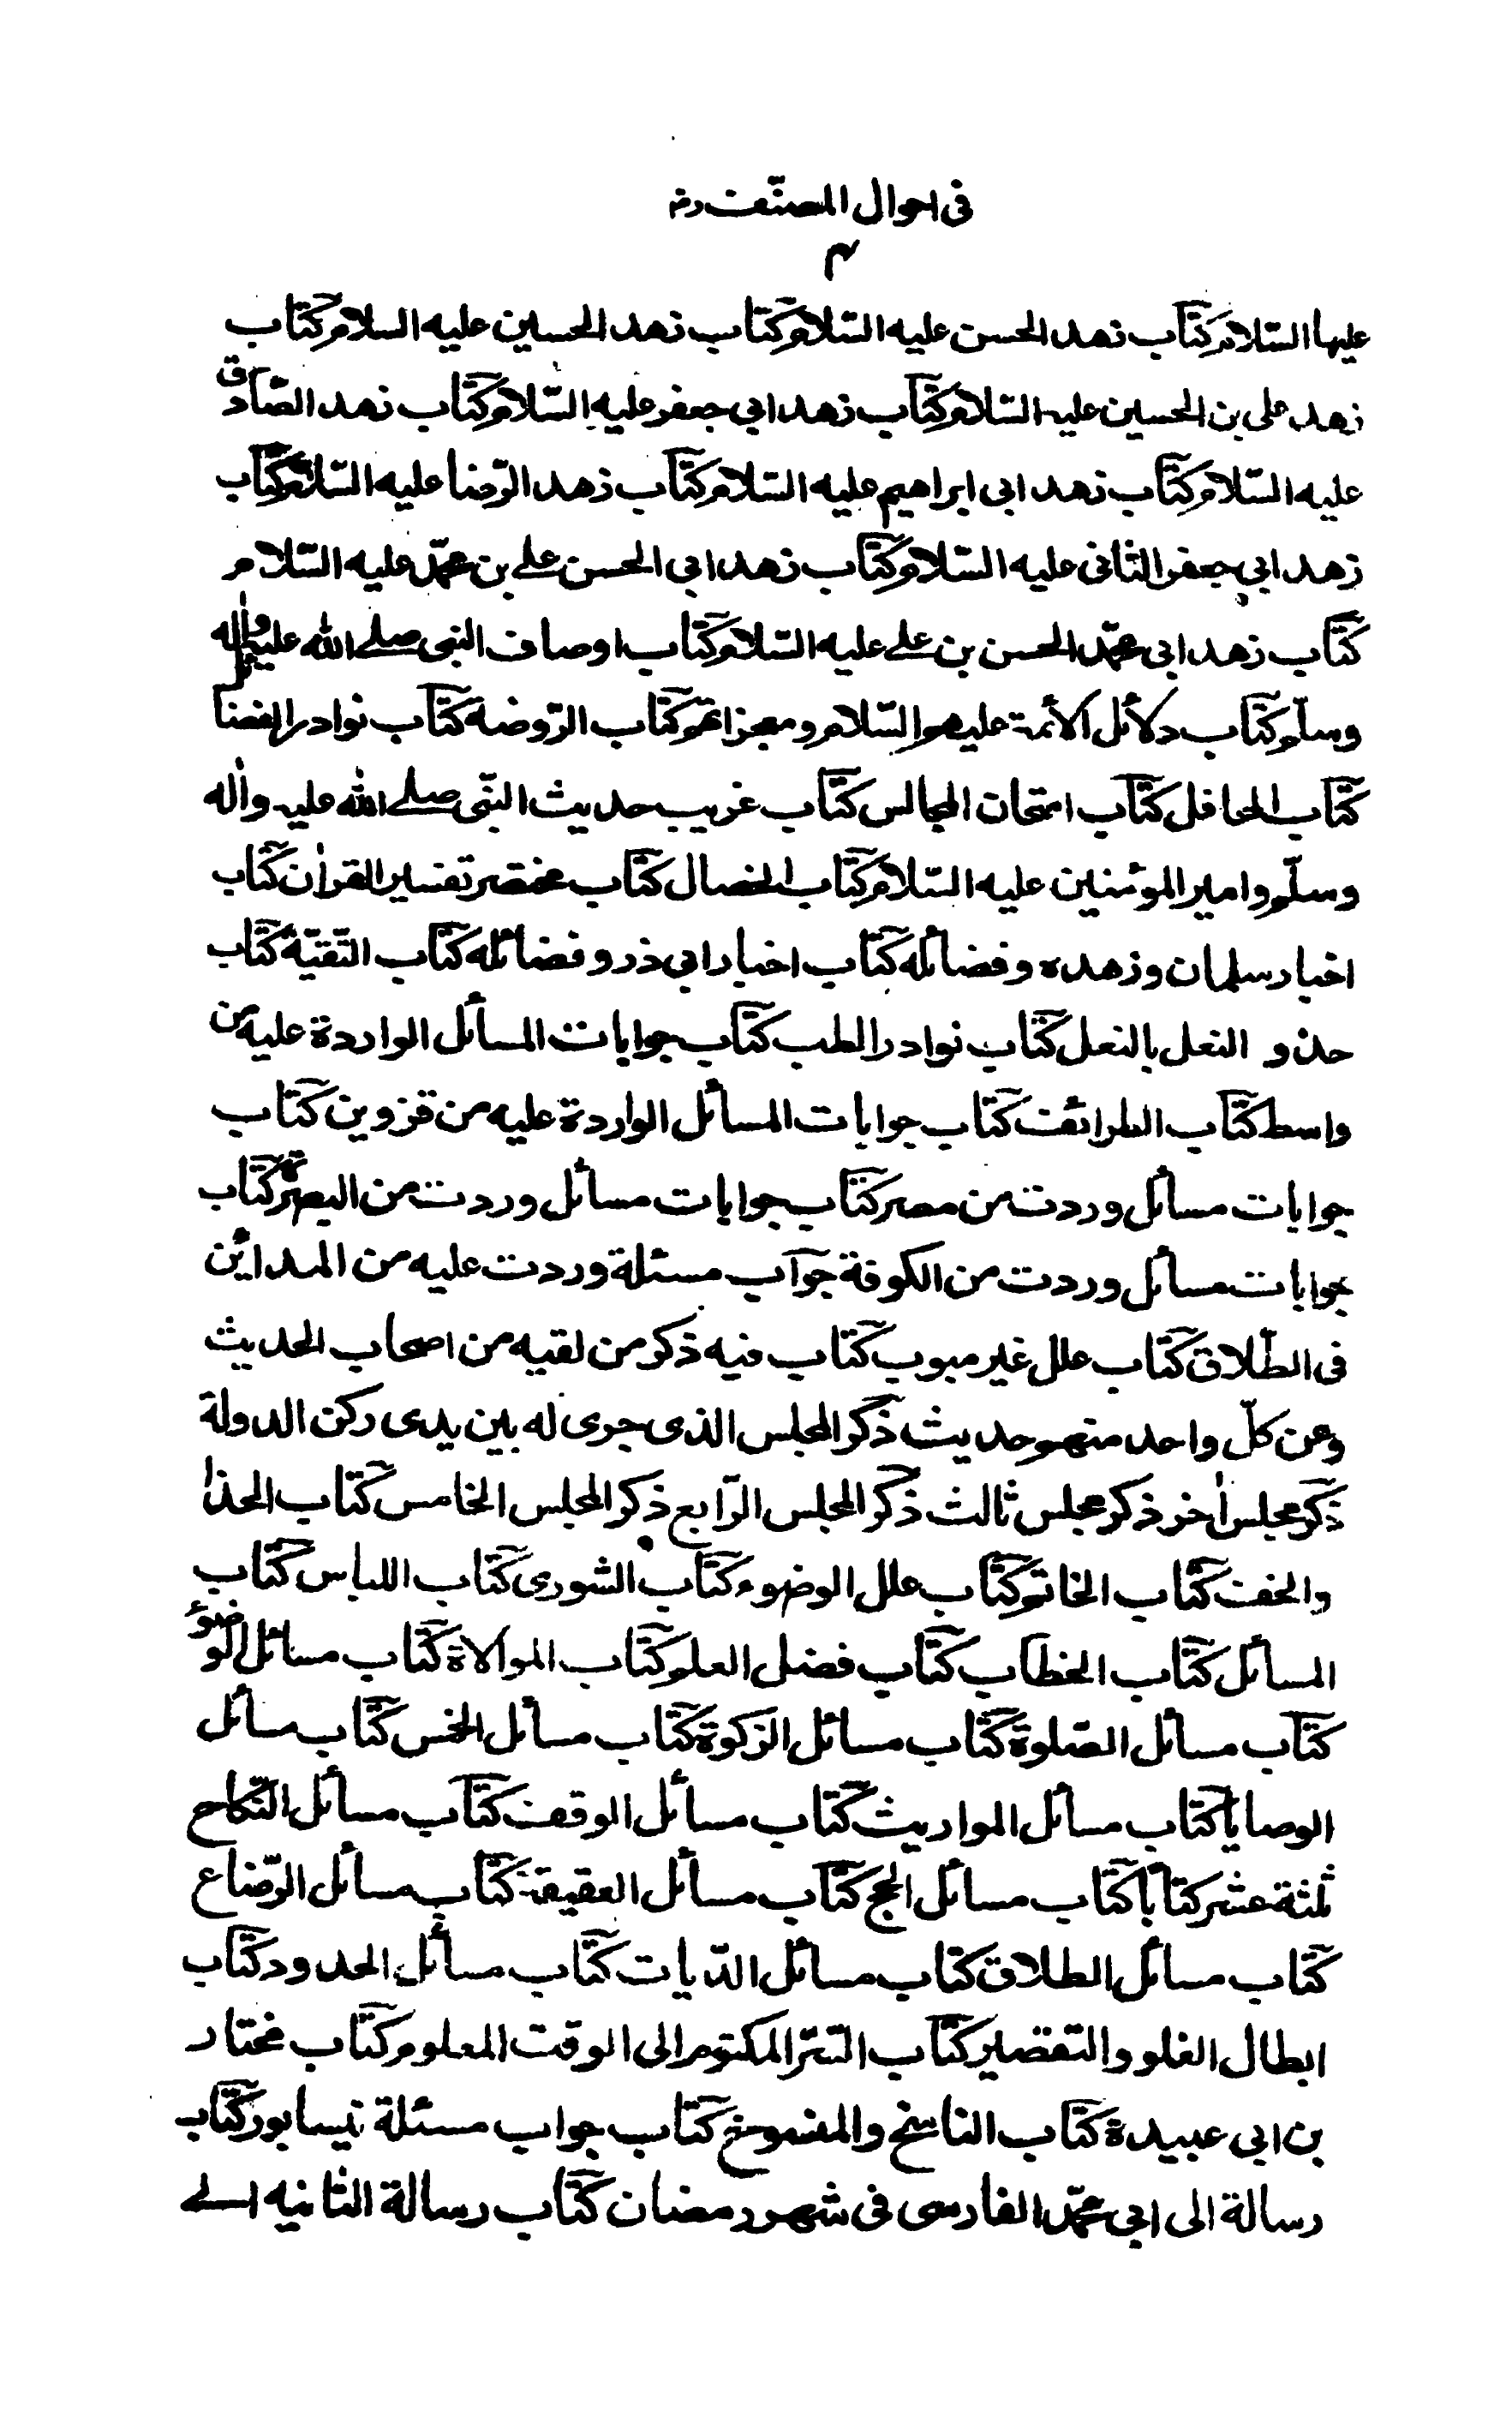 فی احوال المصنّف ره
۳
علیها السّلام کتاب زهد الحسن علیه السّلام کتاب زهد الحسین علیه السلام کتاب
زهد علی بن الحسین علیه السّلام کتاب زهد ابی جعفر علیه السّلام کتاب زهد الصّادق
علیه السّلام کتاب زهد ابی ابراهیم علیه السّلام کتاب زهد الرّضا علیه السّلام کتاب
زهد ابی جعفر الثانی علیه السّلام کتاب زهد ابی الحسن علی بن محمّد علیه السّلام
کتاب زهد ابی محمّد الحسن بن علی علیه السّلام کتاب اوصاف النبی صلی الله علیه واله
وسلّم کتاب دلائل الائمة علیهم السّلام و معجزاتهم کتاب الرّوضة کتاب نوادر الفضا
کتاب المحافل کتاب امتحان المجالس کتاب غریب حدیث النبّی صلی الله علیه واله
وسلّم وامیر المؤمنین علیه السّلام کتاب الخصال کتاب مختصر تفسیر القران کتاب
اخبار سلمان وزهده وفضائله کتاب اخبار ابی ذر وفضائله کتاب التّقیّة کتاب
حذو النعل بالنعل کتاب نوادر الطب کتاب جوابات المسائل الواردة علیه من
واسط کتاب الطرائف کتاب جوابات المسائل الواردة علیه من قزوین کتاب
جوابات مسائل وردت من مصر کتاب جوابات مسائل وردت من البصرة کتاب
جوابات مسائل وردت من الکوفة جواب مسئلة وردت علیه من المدائن
فی الطّلاق کتاب علل غیر مبوب کتاب فیه ذکر من لقیه من اصحاب الحدیث
وعن کلّ واحد منهم حدیث ذکر المجلس الذی جری له بین یدی رکن الدولة
ذکر مجلس اٰخر ذکر مجلس ثالث ذکر المجلس الرّابع ذکر المجلس الخامس کتاب الحذا
والخف کتاب الخاتم کتاب علل الوضوء کتاب الشوری کتاب اللباس کتاب
المسائل کتاب الخطاب کتاب فضل العلم کتاب الموالاة کتاب مسائل الوضوء
کتاب مسائل الصّلوة کتاب مسائل الزکوة کتاب مسائل الخمس کتاب مسائل
الوصایا کتاب مسائل المواریث کتاب مسائل الوقف کتاب مسائل النّکاح
ثلثة عشر کتاباً کتاب مسائل الحج کتاب مسائل العقیقة کتاب مسائل الرّضاع
کتاب مسائل الطلاق کتاب مسائل الدّیات کتاب مسائل الحدود کتاب
ابطال الغلو والتقصیر کتاب السّرّ المکتوم الی الوقت المعلوم کتاب مختار
بن ابی عبیدة کتاب الناسخ والمنسوخ کتاب جواب مسئلة نیسابور کتاب
رسالة الی ابی محمّد الفارسی فی شهر رمضان کتاب رسالة الثانیه الی